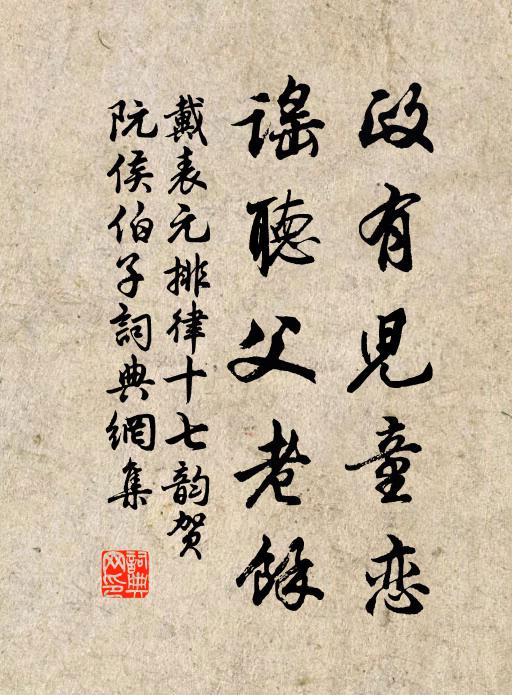 政有児童恋
謡聽父老餘
戴表元排律十七韵贺
阮侯伯子詞典網集
詞典网印